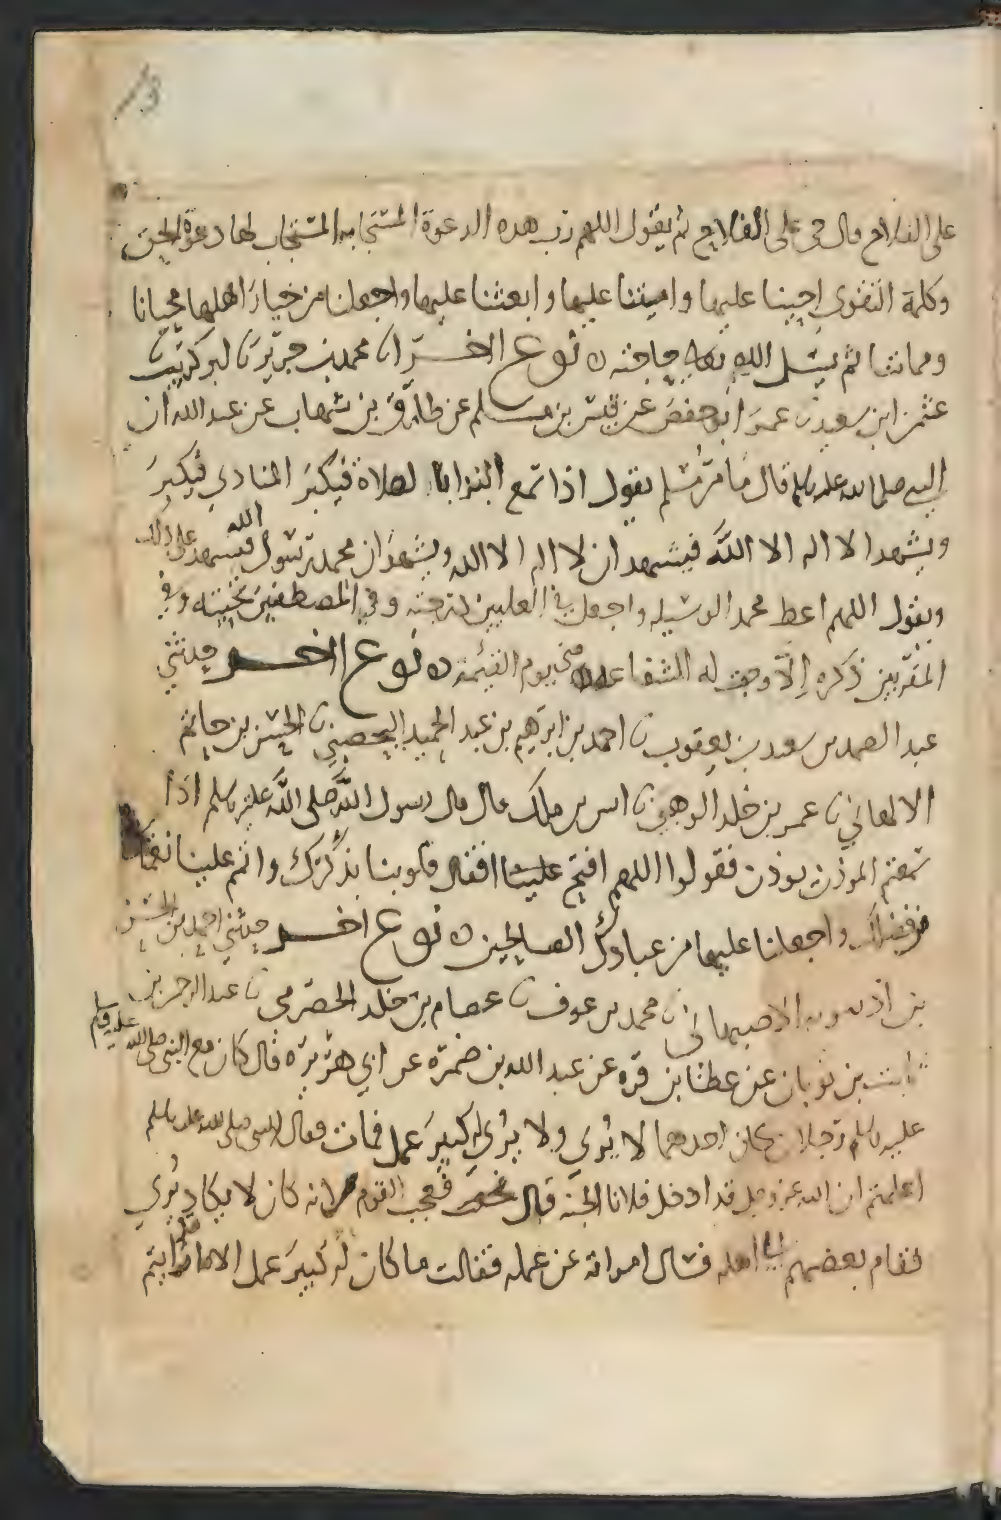 على الفلاح قال حي على الفلاح ثم يقول اللهم رب هذه الدعوة المستجابة المستجاب لها دعوة الحق
وكلمة التقوى احيينا عليها وامتنا عليها وابعثنا عليها واجعلنا من خيار اهلها محيانا
ومماتنا ثم يسل الله تعالى حاجته نوع اخر محمد بن جرير ابو كريب
عثمن ابن سعيد عمر ابو حفص عن قيس بن مسلم عن طارق بن شهاب عن عبد الله ان
النبي صلى الله عليه وسلم قال ما من مسلم يقول اذا سمع الندا بالصلاة فيكبر المنادي فيكبر
ويشهد الا اله الا الله فيشهد ان لا اله الا الله ويشهد ان محمد رسول الله فيشهد على ذلك
ويقول اللهم اعط محمد الوسيله واجعل في العليين درجته وفي المصطفين محبته وفي
المقربين ذكره الا وجبت له الشفاعة مني يوم القيمة نوع اخر حدثني
عبد الصمد بن سعيد بن يعقوب احمد بن ابرهيم بن عبد الحميد الحسن بن حاتم
الالهاني عمر بن خلد الوهبي انس بن ملك قال قال رسول الله صلى الله عليه وسلم اذا
سمعتم الموذن يوذن فقولوا اللهم افتح علينا اقفال قلوبنا بذكرك واتمم علينا نعمتك
من فضلك واجعلنا عليها من عبادك الصالحين نوع اخر حدثني احمد بن الحسن
بن الاصبهاني محمد بن عوف عصام بن خلد الحضرمي عبد الرحمن بن
ثابت بن ثوبان عن عطا بن قره عن عبد الله بن ضمره عن ابي هريره قال كان مع النبي صلى الله عليه وسلم
عليه وسلم رجلان كان احدهما لا يرى ولا يرى له كبير عمل فمات فقال النبي صلى الله عليه وسلم
اعلمتم ان الله عز وجل قد ادخل فلانا الجنة قال فعجب القوم لانه كان لا يكاد يرى
فقام بعضهم الى اهله فسال امراته عن عمله فقالت ما كان له كبير عمل الا ما قد رايتم